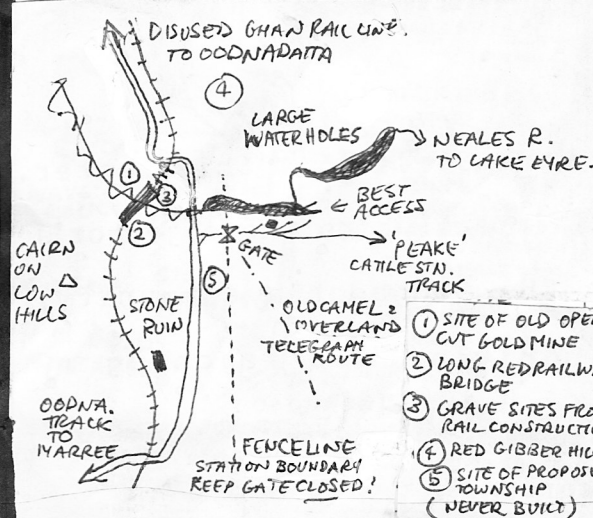 DISUSED GHAN RAIL LINE.
TO OODNADATTA
④
LARGE
WATERHOLES
NEALES R.
TO LAKE EYRE.
①
③
BEST
ACCESS
②
GATE
'PEAKE'
CATTLE STN.
TRACK
CAIRN
ON
LOW
HILLS
⑤
STONE
RUIN
OLD CAMEL &
OVERLAND
TELEGRAPH
ROUTE
OODNA.
TRACK
TO
MARREE
FENCELINE
STATION BOUNDARY
KEEP GATE CLOSED!
① SITE OF OLD OPE
CUT GOLD MINE
② LONG RED RAILW
BRIDGE
③ GRAVE SITES FRO
RAIL CONSTRUCTI
④ RED GIBBER HIL
⑤ SITE OF PROPOSE
TOWNSHIP
(NEVER BUILT)